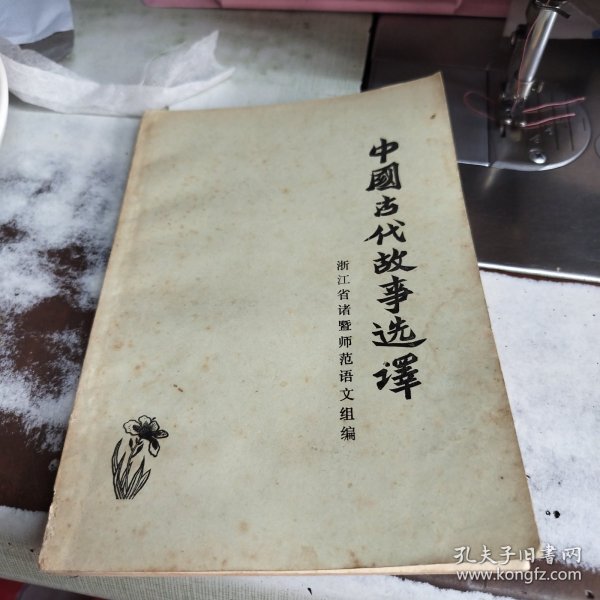 中國古代故事选譯
浙江省诸暨师范语文组编
孔夫子旧书网
www.kongfz.com